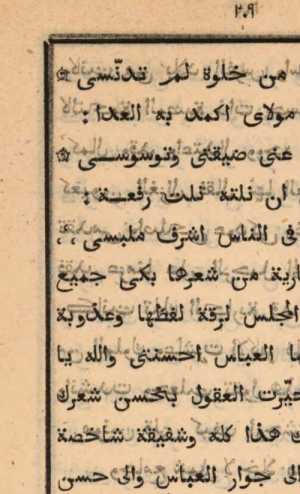 ٢٠٩
من خلوة لم تدنّسي
مولاى اكمد به العدا :
عنى ضيقتى وتوسوسى
ان نلته نلت رفعة :
فى الناس اشرف ملبسى
من شعرها بكى جميع
المجلس لرقة لفظها وعذوبة
العباس احسنتى والله يا
حيّرت العقول بحسن شعرك
هذا كله وشفيقة شاخصة
الى جوار العباس والى حسن